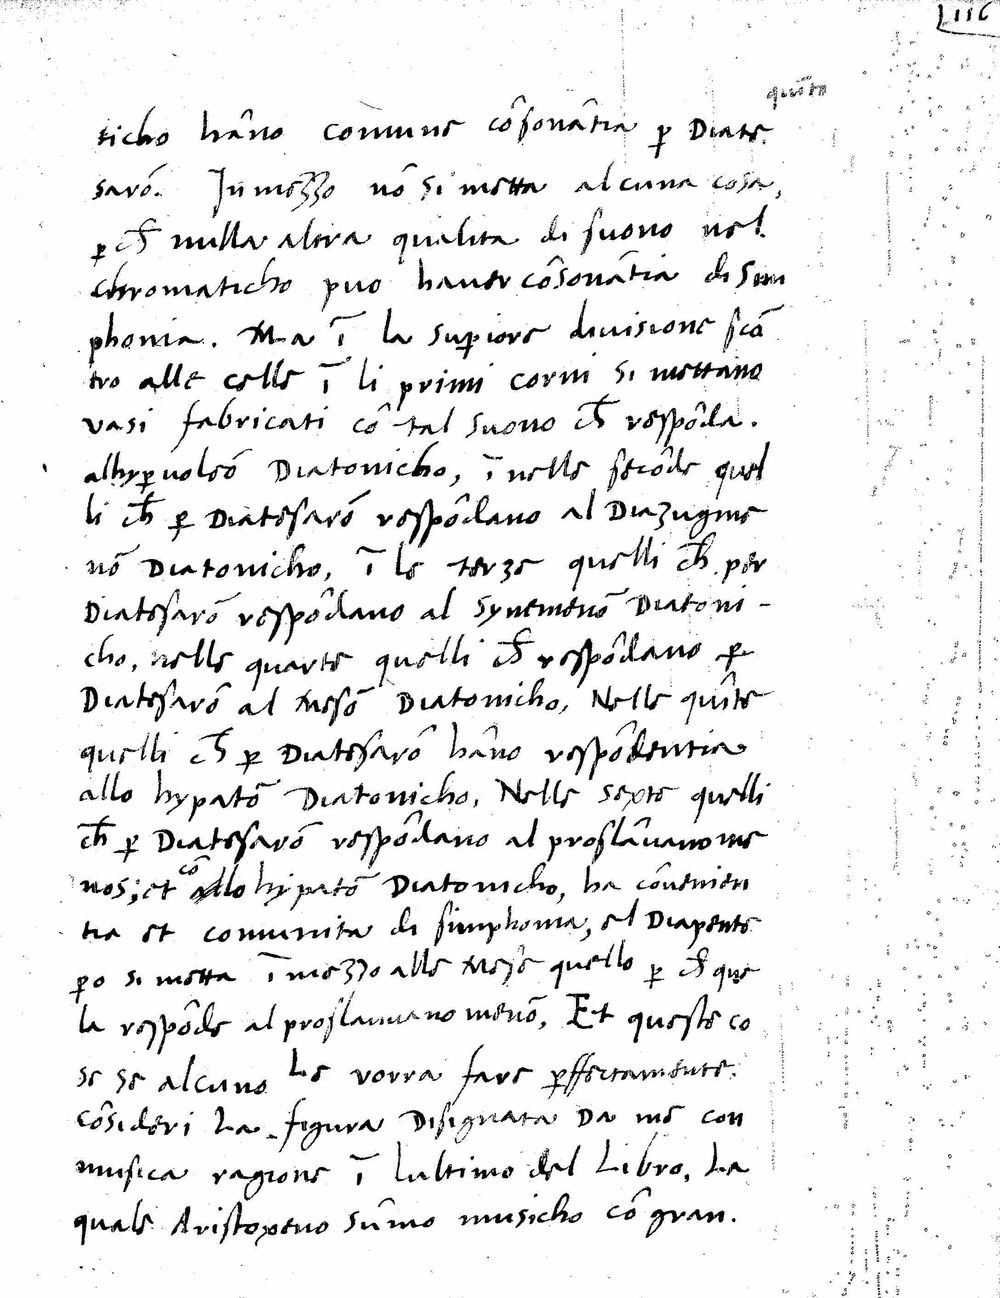 116
quīto
ticho hāno comune cōsonātia ꝑ Diate
sarō. In mezzo nō si metta alcuna cosa,
ꝑ ch̄ nulla altra qualita di suono nel
chromaticho puo haver cōsonātia di Sim
phonia. Ma ī la suꝑiore divisione scō
tro alle celle ī li primi corni si mettano
vasi fabricati cō tal suono ch̄ respōda.
alhyꝑvoleō Diatonicho, ī nelle secōde quel
li ch̄ ꝑ Diatesarō respōdano al Diazugme
nō Diatonicho, ī le terze quelli ch̄ per
Diatesarō respōdano al Synemenō Diatoni-
cho, nelle quarte quelli ch̄ respōdano ꝑ
Diatesarō al Mesō Diatonicho, Nelle quīte
quelli ch̄ ꝑ Diatesarō hāno respōdentia
allo hypatō Diatonicho, Nelle sexte quelli
ch̄ ꝑ Diatesarō respōdano al proslāvanome
nos; et cō allo hipatō Diatonicho, ha cōvenien
tia et comunita di simphonia, el Diapente
ꝑo si metta ī mezzo alle Meze quello ꝑ ch̄ que
la respōde al proslamvanomenō, Et queste co
se se alcuno Le vorra fare ꝑffectamente.
cōsideri La figura Disignata Da me con
musica ragione ī lultimo del Libro, La
quale Aristoxeno sūmo musicho cō gran.